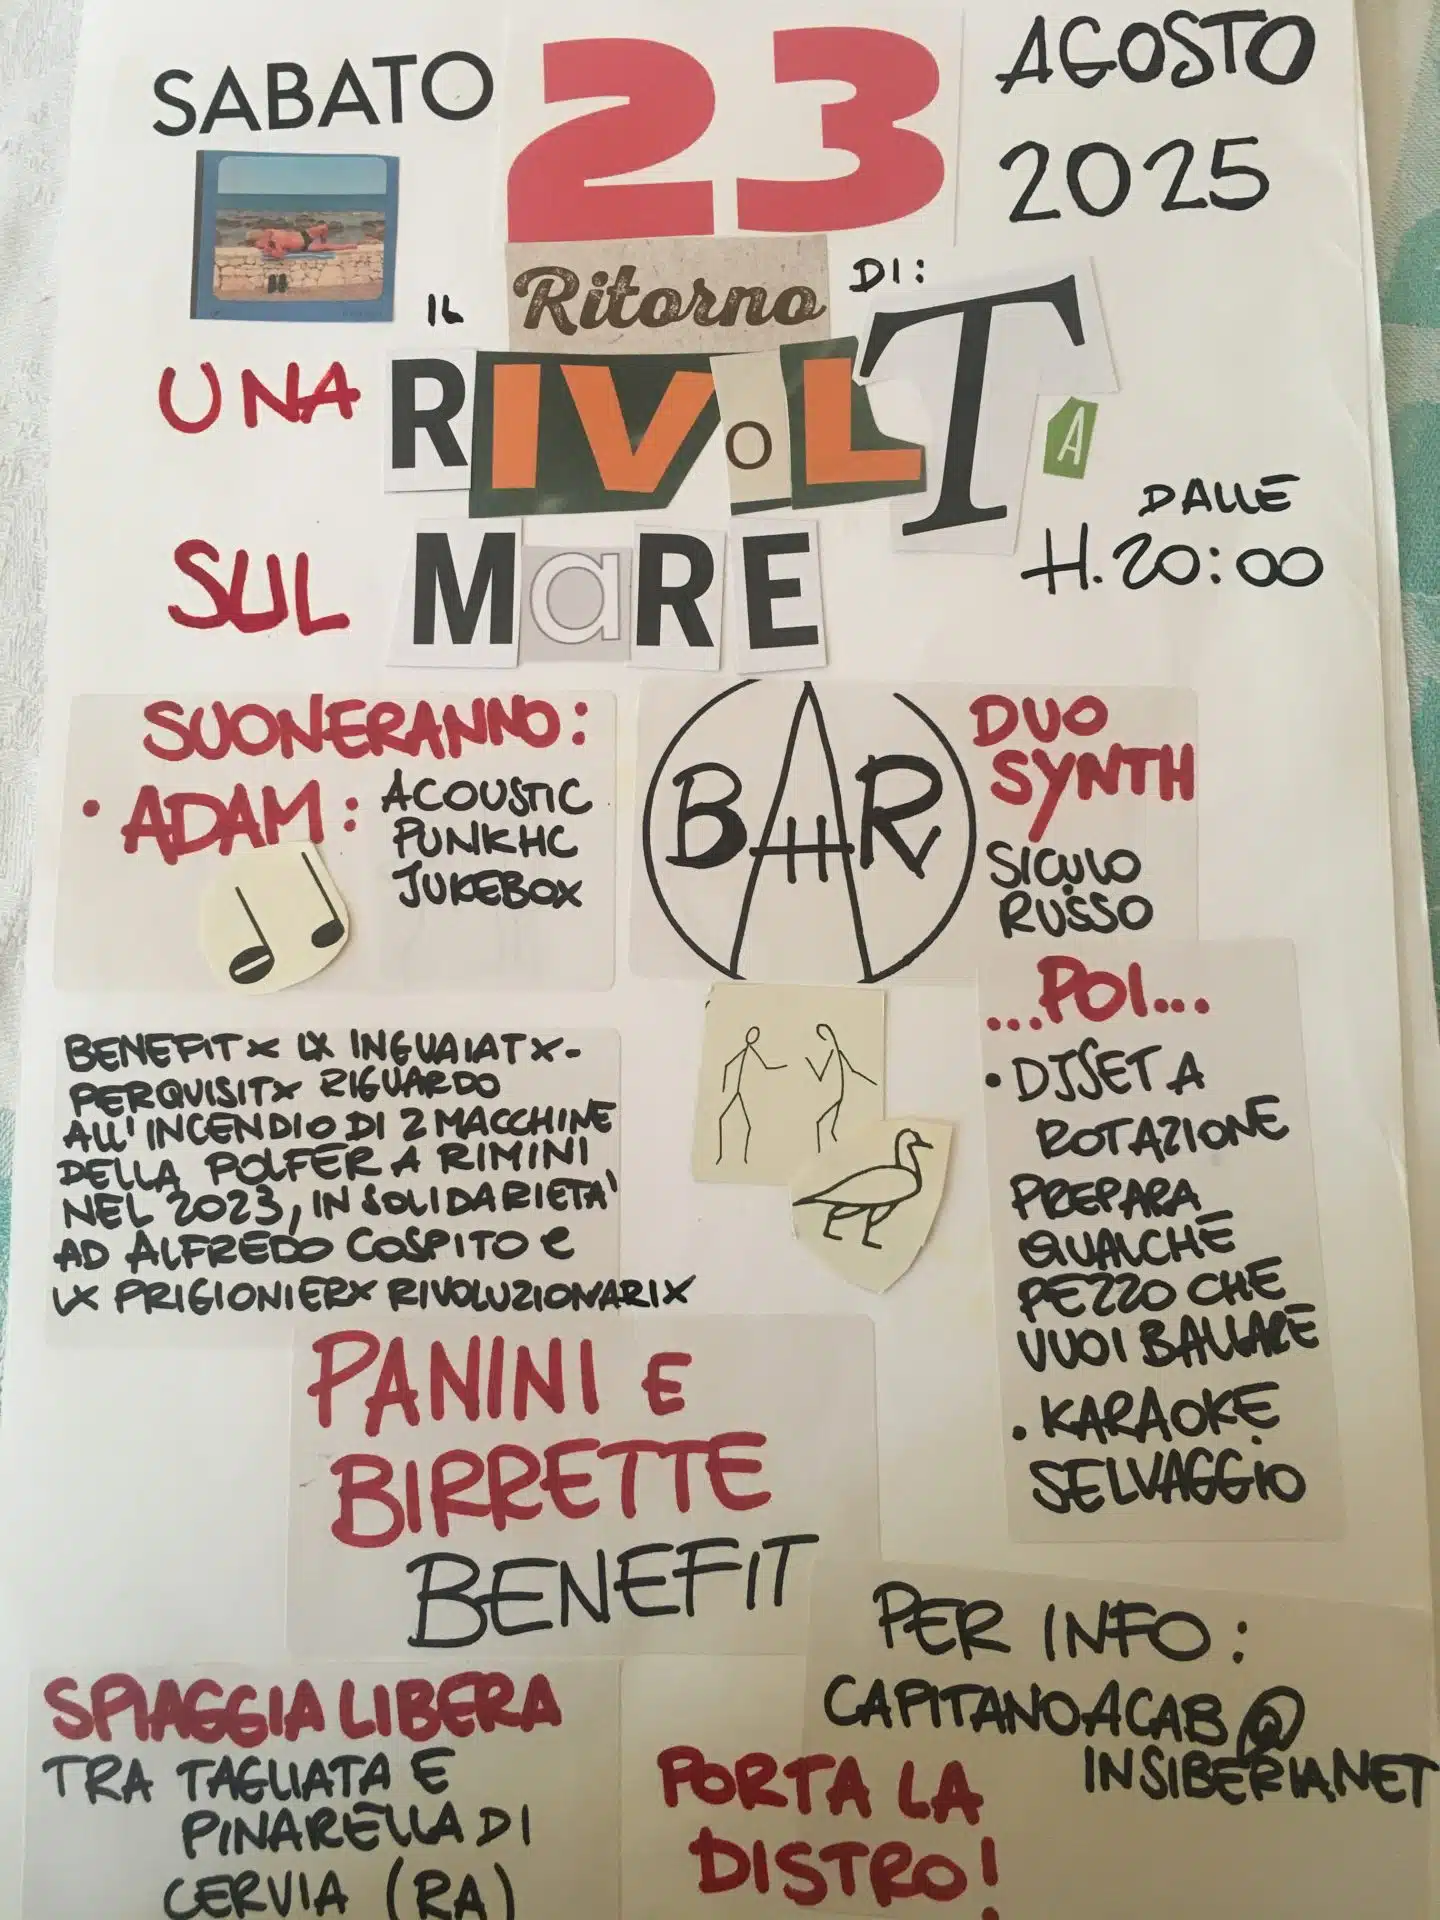 SABATO 23 AGOSTO
2025
IL Ritorno DI:
UNA RIVoLTA
SUL MaRE
DALLE
H.20:00
SUONERANNO:
• ADAM: ACOUSTIC
PUNKHC
JUKEBOX
BAR
DUO
SYNTH
SICULO
RUSSO
...POI...
• DJSET A
ROTAZIONE
PREPARA
QUALCHE
PEZZO CHE
VUOI BALLARE
• KARAOKE
SELVAGGIO
BENEFIT X LX INGUAIATX-
PERQUISITX RIGUARDO
ALL'INCENDIO DI 2 MACCHINE
DELLA POLFER A RIMINI
NEL 2023, IN SOLIDARIETA'
AD ALFREDO COSPITO E
LX PRIGIONIERX RIVOLUZIONARIX
PANINI E
BIRRETTE
BENEFIT
PER INFO:
CAPITANOACAB@
INSIBERIA.NET
SPIAGGIA LIBERA
TRA TAGLIATA E
PINARELLA DI
CERVIA (RA)
PORTA LA
DISTRO!